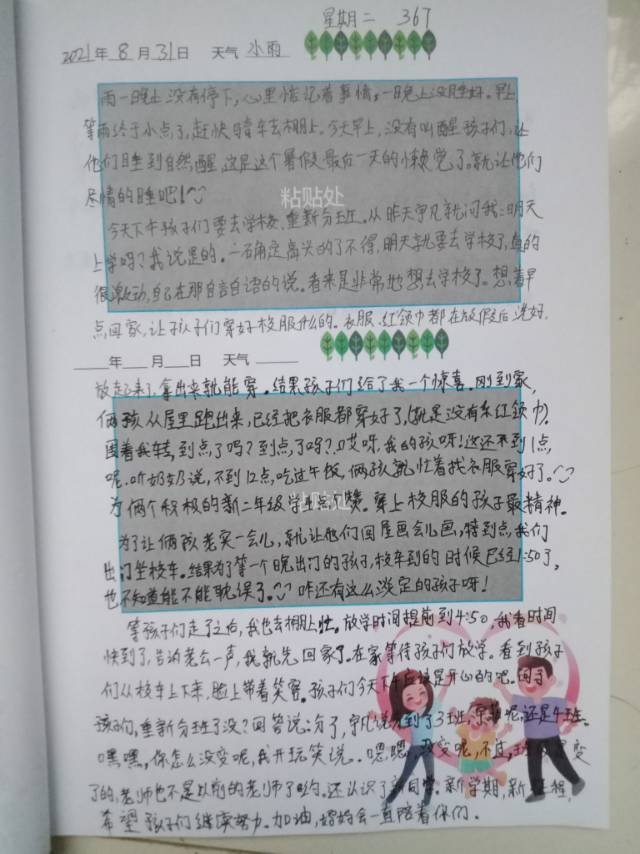 星期二 367
2021年8月31日 天气 小雨
雨一晚上没有停下,心里惦记着事情,一晚上没睡好。早上
等雨终于小点了,赶快骑车去棚上。今天早上,没有叫醒孩子们,让
他们睡到自然醒,这是这个暑假最后一天的懒觉了。就让他们
尽情的睡吧!
粘贴处
今天下午孩子们要去学校,重新分班。从昨天宇凡就问我:明天
上学吗?我说是的。一确定高兴的了不得,明天就要去学校了,真的
很激动,自己在那自言自语的说。看来是非常地想去学校了。想着早
点回家,让孩子们穿好校服什么的。衣服、红领巾都在放假后洗好,
年 月 日 天气
放起来了,拿出来就能穿。结果孩子们给了我一个惊喜。刚到家,
俩孩从屋里跑出来,已经把衣服都穿好了,(就是没有系红领巾)。
围着我转,到点了吗?到点了吗?哎呀,我的孩呀!这还不到1点
呢。听奶奶说,不到12点,吃过午饭,俩孩就忙着找衣服穿好了。
为俩个积极的新二年级学生点个赞。穿上校服的孩子最精神。
粘贴处
为了让俩孩老实一会儿,就让他们回屋画会儿画,特到点,我们
出门坐校车。结果为了等一个晚出门的孩子,校车到的时候已经1:50了,
也不知道能不能耽误了。咋还有这么淡定的孩子呀!
等孩子们走了之后,我也去棚上忙。放学时间提前到4:50,我看时间
快到了,告诉老公一声,我就先回家了。在家等待孩子们放学。看到孩子
们从校车上下来,脸上带着笑容。孩子们今天下午应该是开心的吧。问了
孩子们,重新分班了没?回答说:分了,宇凡说分到了3班,呢,还是4班。
嘿嘿,你怎么没变呢,我开玩笑说。嗯嗯,没变呢,不过,班变
了的,老师也不是以前的老师了哟。还认识了新同学。新学期,新征程,
希望孩子们继续努力。加油,妈妈会一直陪着你们。